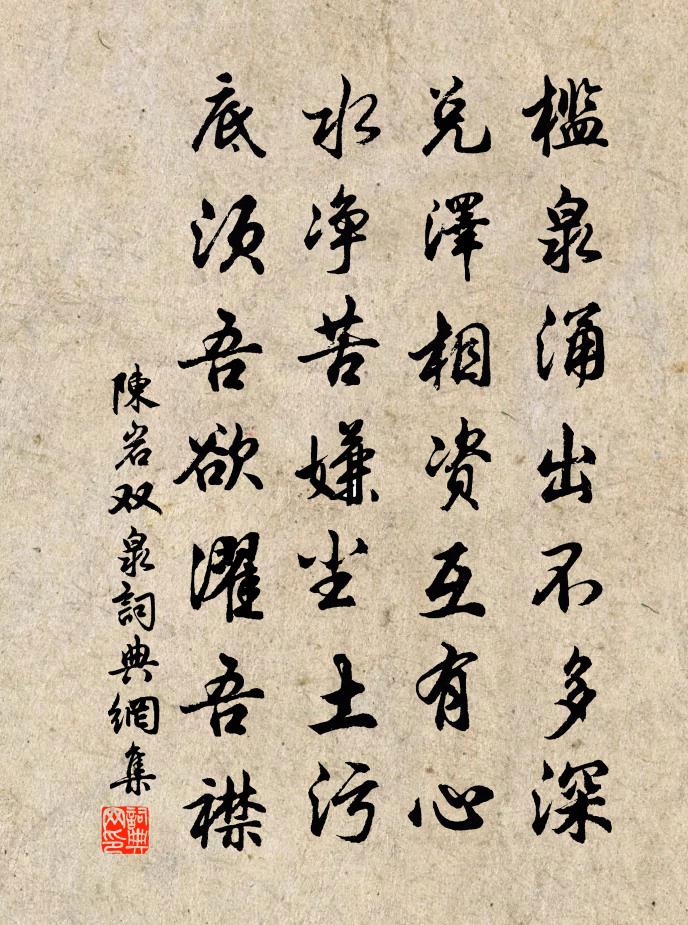 槛泉涌出不多深
兑澤相资互有心
水净苦嫌尘土污
底须吾欲濯吾襟
陳岩双泉詞典網集
詞典网印